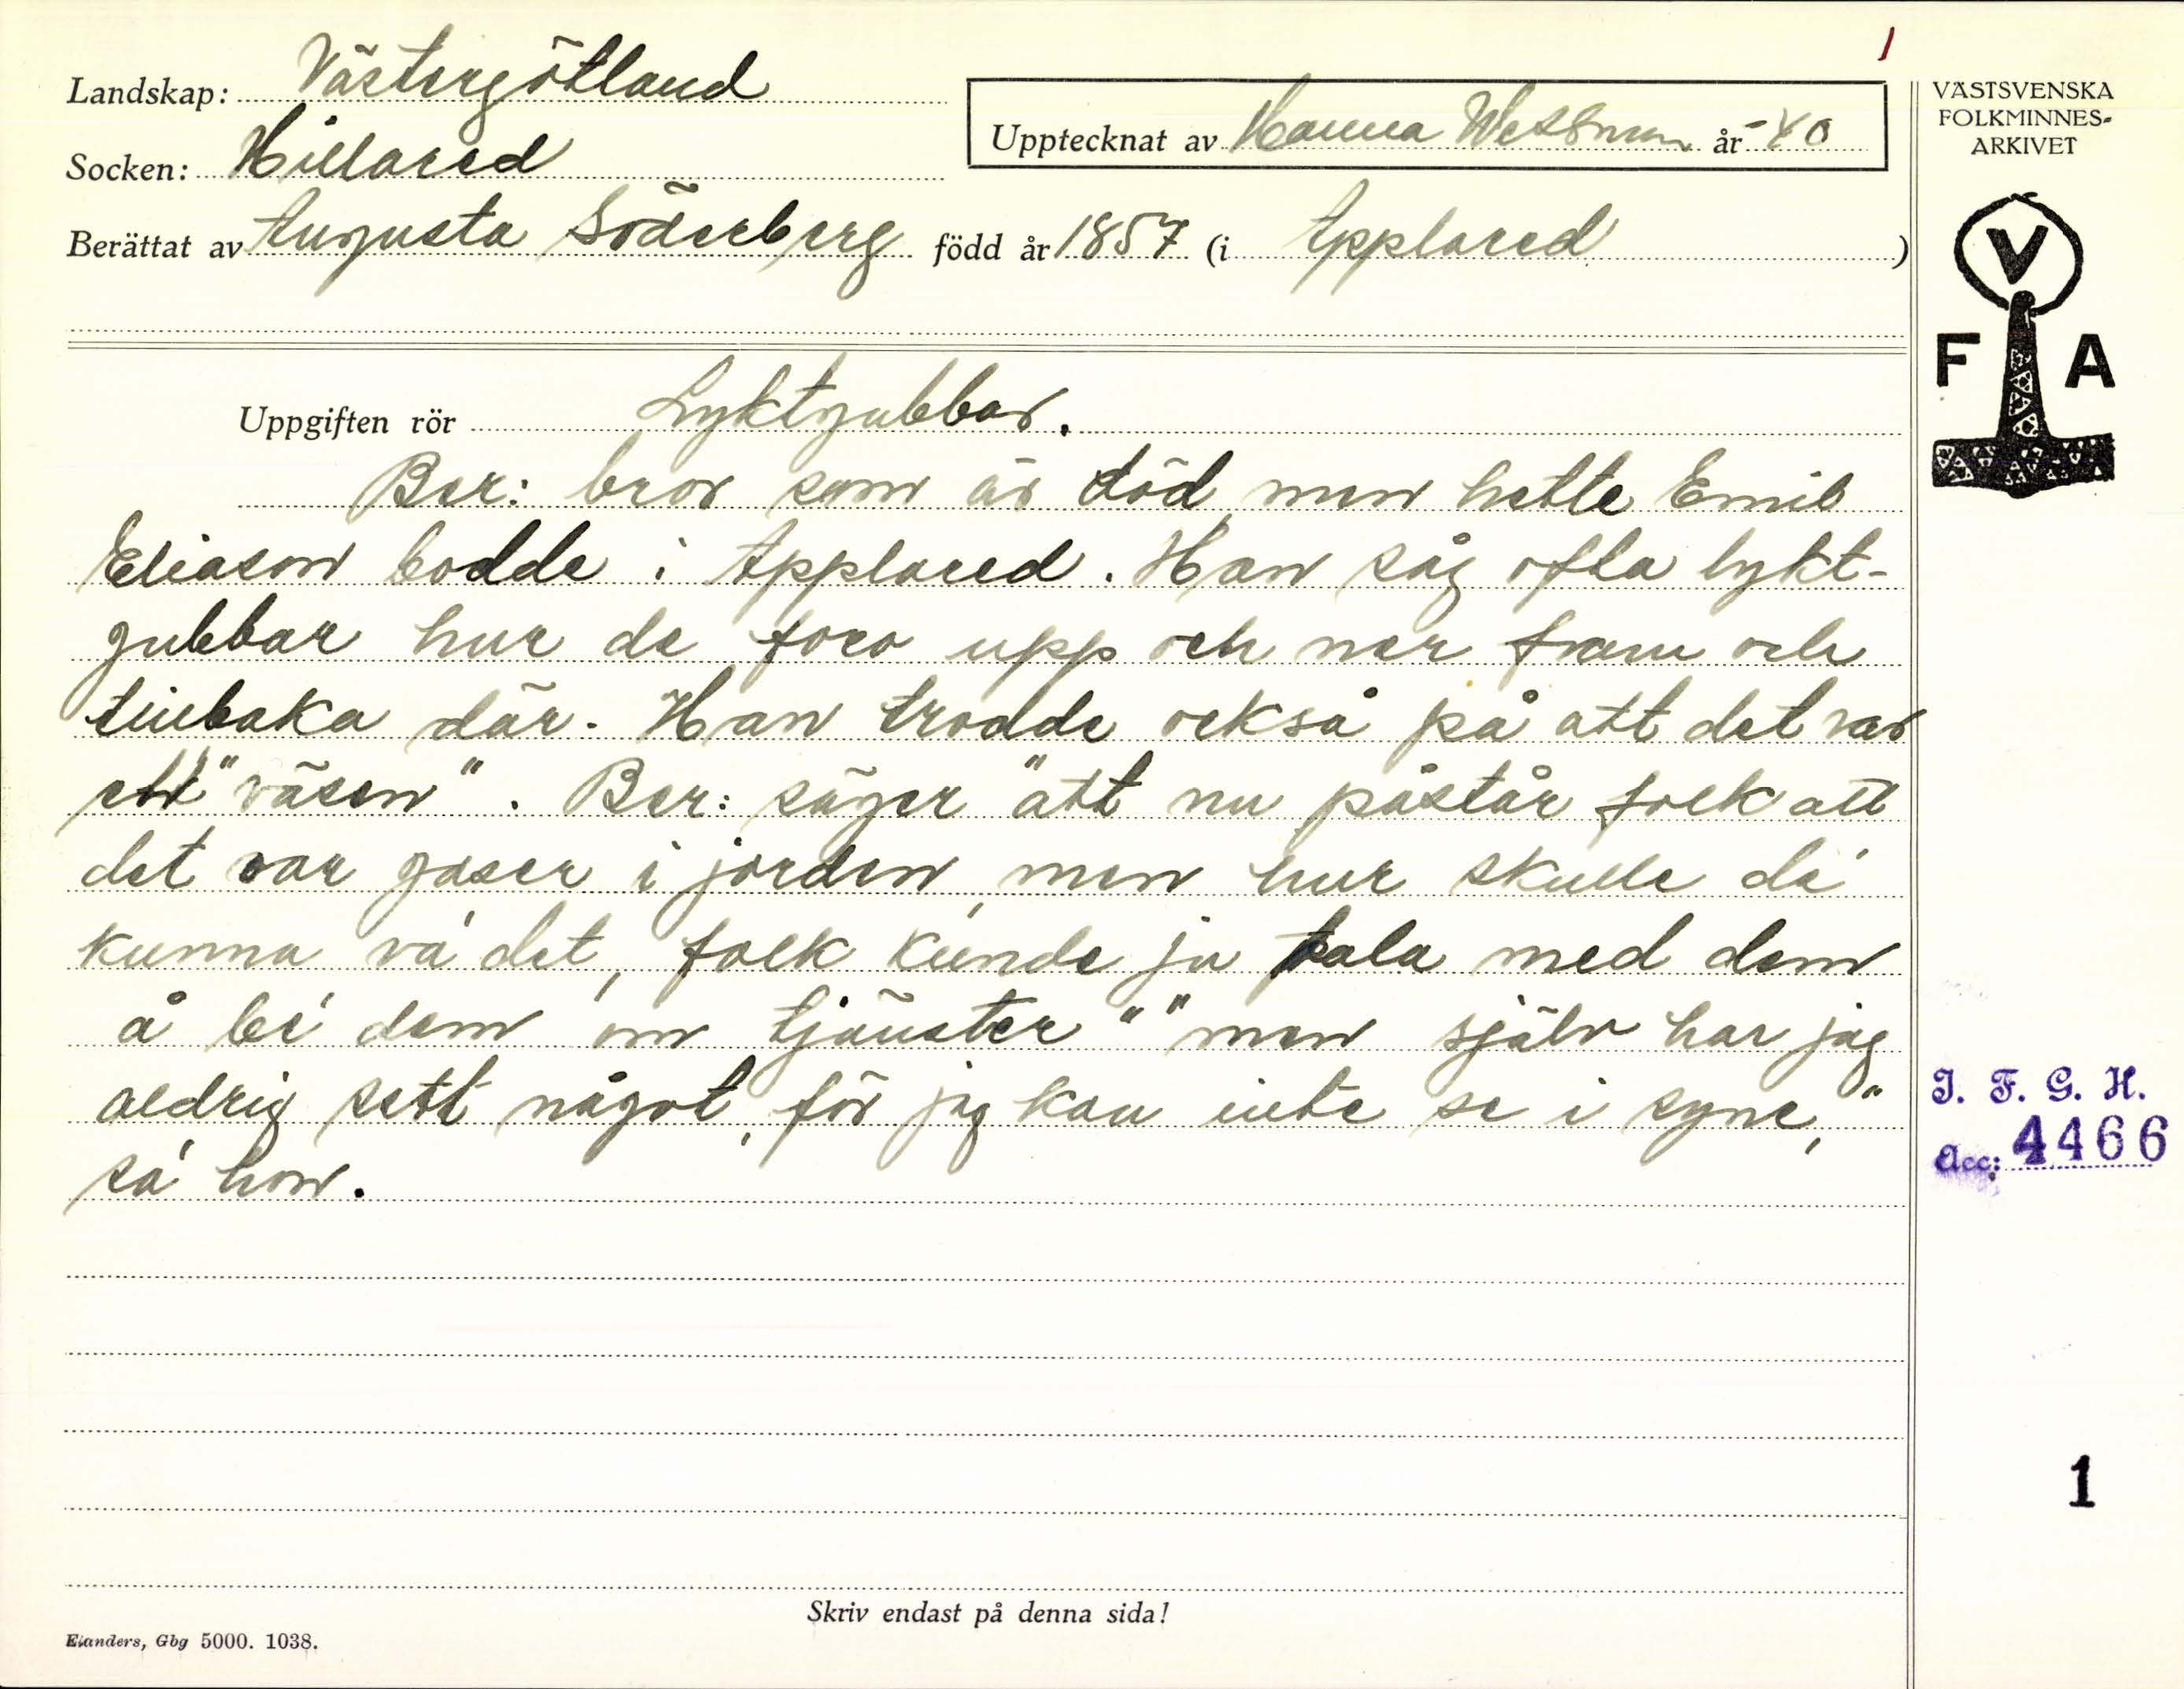 1
Landskap: Västergötland
Upptecknat av Hanna Wessman år -40
Socken: Hillared
Berättat av Augusta Söderberg född år 1857 (i Applared)
VÄSTSVENSKA
FOLKMINNES-
ARKIVET
V
F A
Uppgiften rör Lyktgubbar.
Ber: bror som är död, men hette Emil
Eliason bodde i Applared. Han såg ofta lykt-
gubbar hur de foro upp och ner fram och
tillbaka där. Han trodde också på att det var
ett "väsen". Ber: säger "att nu påstår folk att
det var gaser i jorden, men hur skulle de'
kunna va' det, folk kunde ju tala med dem
å be' dem om tjänster" "men själv har jag
aldrig sett något, för jag kan inte se i syne,"
sa' hon.
I. F. G. H.
Acc: 4466
1
Skriv endast på denna sida!
Elanders, Gbg 5000. 1038.